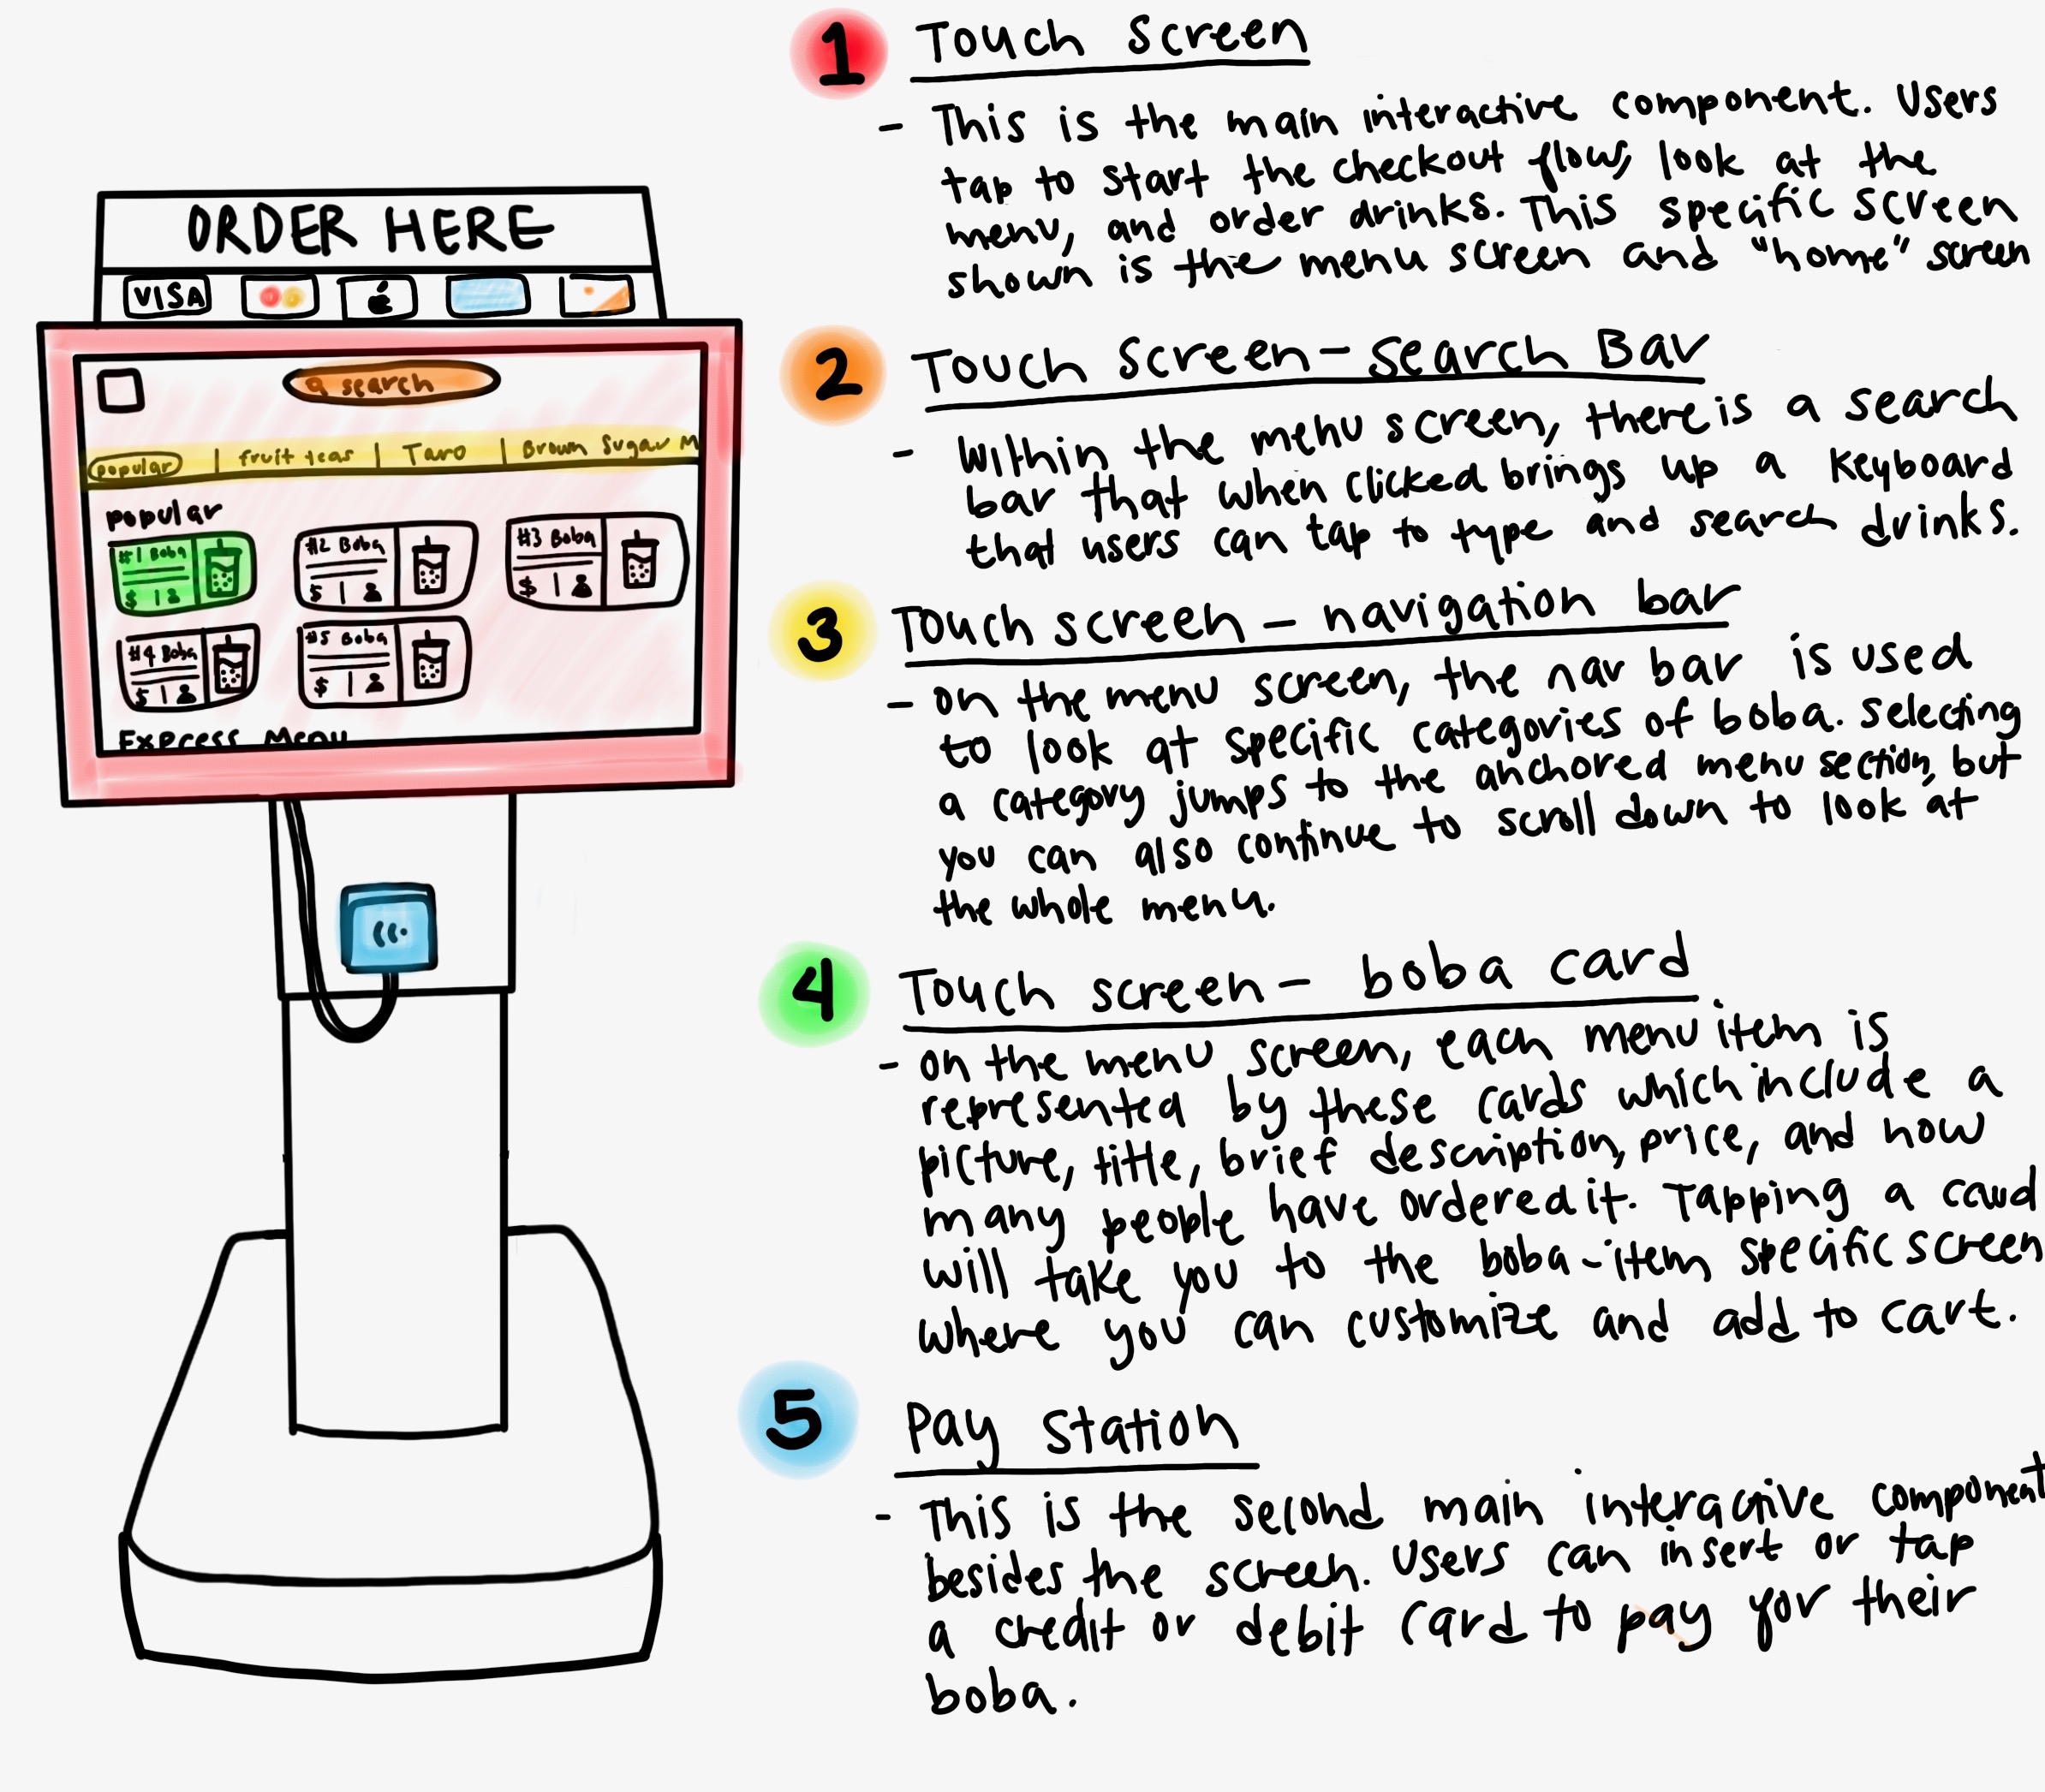 ORDER HERE
VISA
search
popular | fruit teas | Taro | Brown Sugar M
popular
#1 Boba
$ |
#2 Boba
$ |
#3 Boba
$ |
#4 Boba
$ |
#5 Boba
$ |
Express Menu
1 Touch Screen
- This is the main interactive component. Users
tap to start the checkout flow, look at the
menu, and order drinks. This specific screen
shown is the menu screen and "home" screen
2 Touch screen - search Bar
- Within the menu screen, there is a search
bar that when clicked brings up a keyboard
that users can tap to type and search drinks.
3 Touch screen - navigation bar
- on the menu screen, the nav bar is used
to look at specific categories of boba. Selecting
a category jumps to the anchored menu section, but
you can also continue to scroll down to look at
the whole menu.
4 Touch screen - boba card
- on the menu screen, each menu item is
represented by these cards which include a
picture, title, brief description, price, and how
many people have ordered it. Tapping a card
will take you to the boba-item specific screen
where you can customize and add to cart.
5 Pay Station
- This is the second main interactive component
besides the screen. Users can insert or tap
a credit or debit card to pay for their
boba.